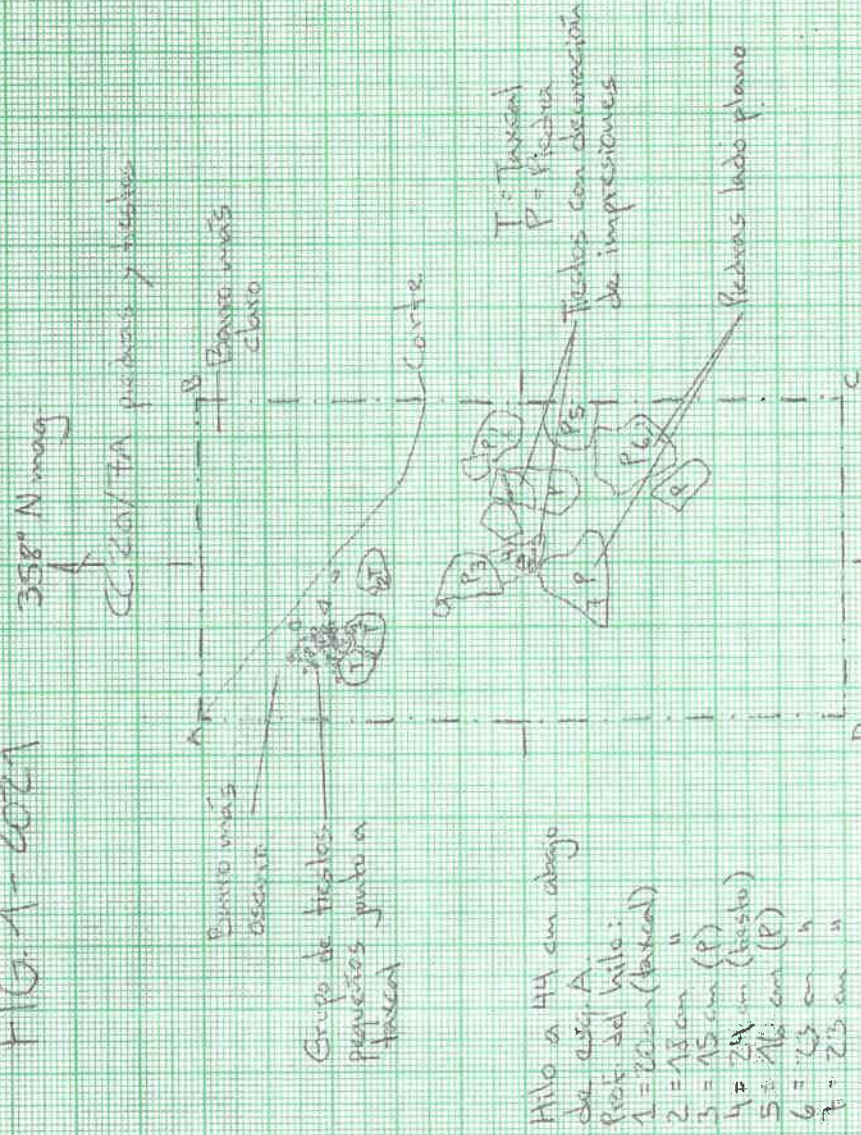 FIG. 1 - 2021
358° N mag
piedras y tiestos
A
B
Barro más
claro
Barro más
oscuro
Corte
Grupo de tiestos
pequeños junto a
taxcal
T
T
2T
T = Taxcal
P = Piedra
Tiestos con decoración
de impresiones
Piedras lado plano
P3
4
P
P5
7 P
P6
P
Hilo a 44 cm abajo
de esq. A.
Prof. del hilo:
1 = 20 cm (taxcal)
2 = 18 cm "
3 = 15 cm (P)
4 = 24 cm (tiesto)
5 = 16 cm (P)
6 = 23 cm "
7 = 23 cm "
D
C